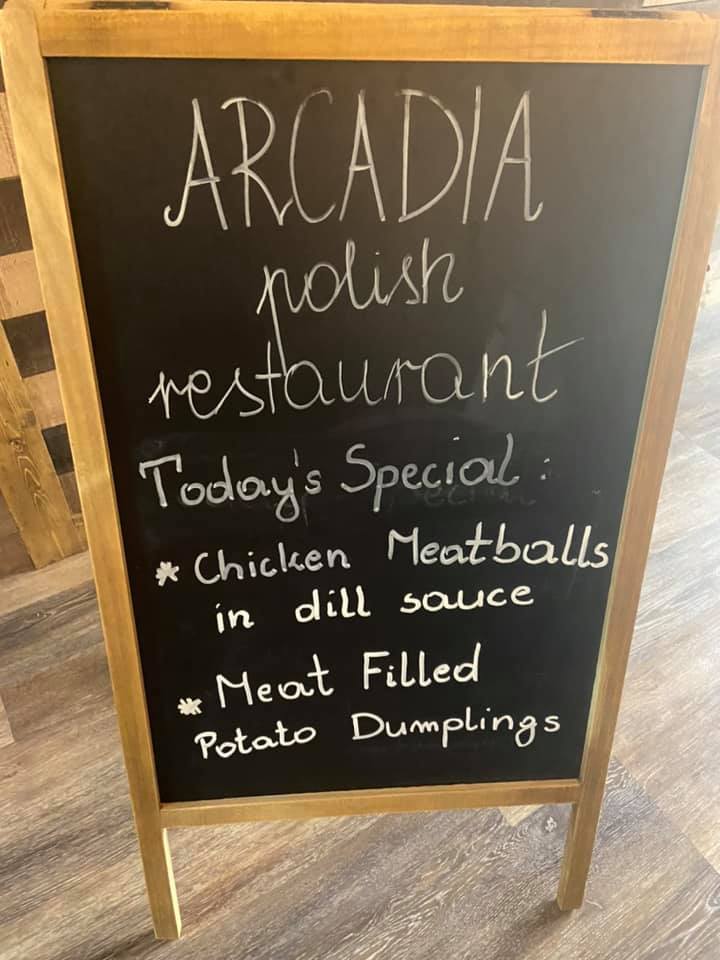 ARCADIA
polish
restaurant
Today's Special :
* Chicken Meatballs
in dill sauce
* Meat Filled
Potato Dumplings